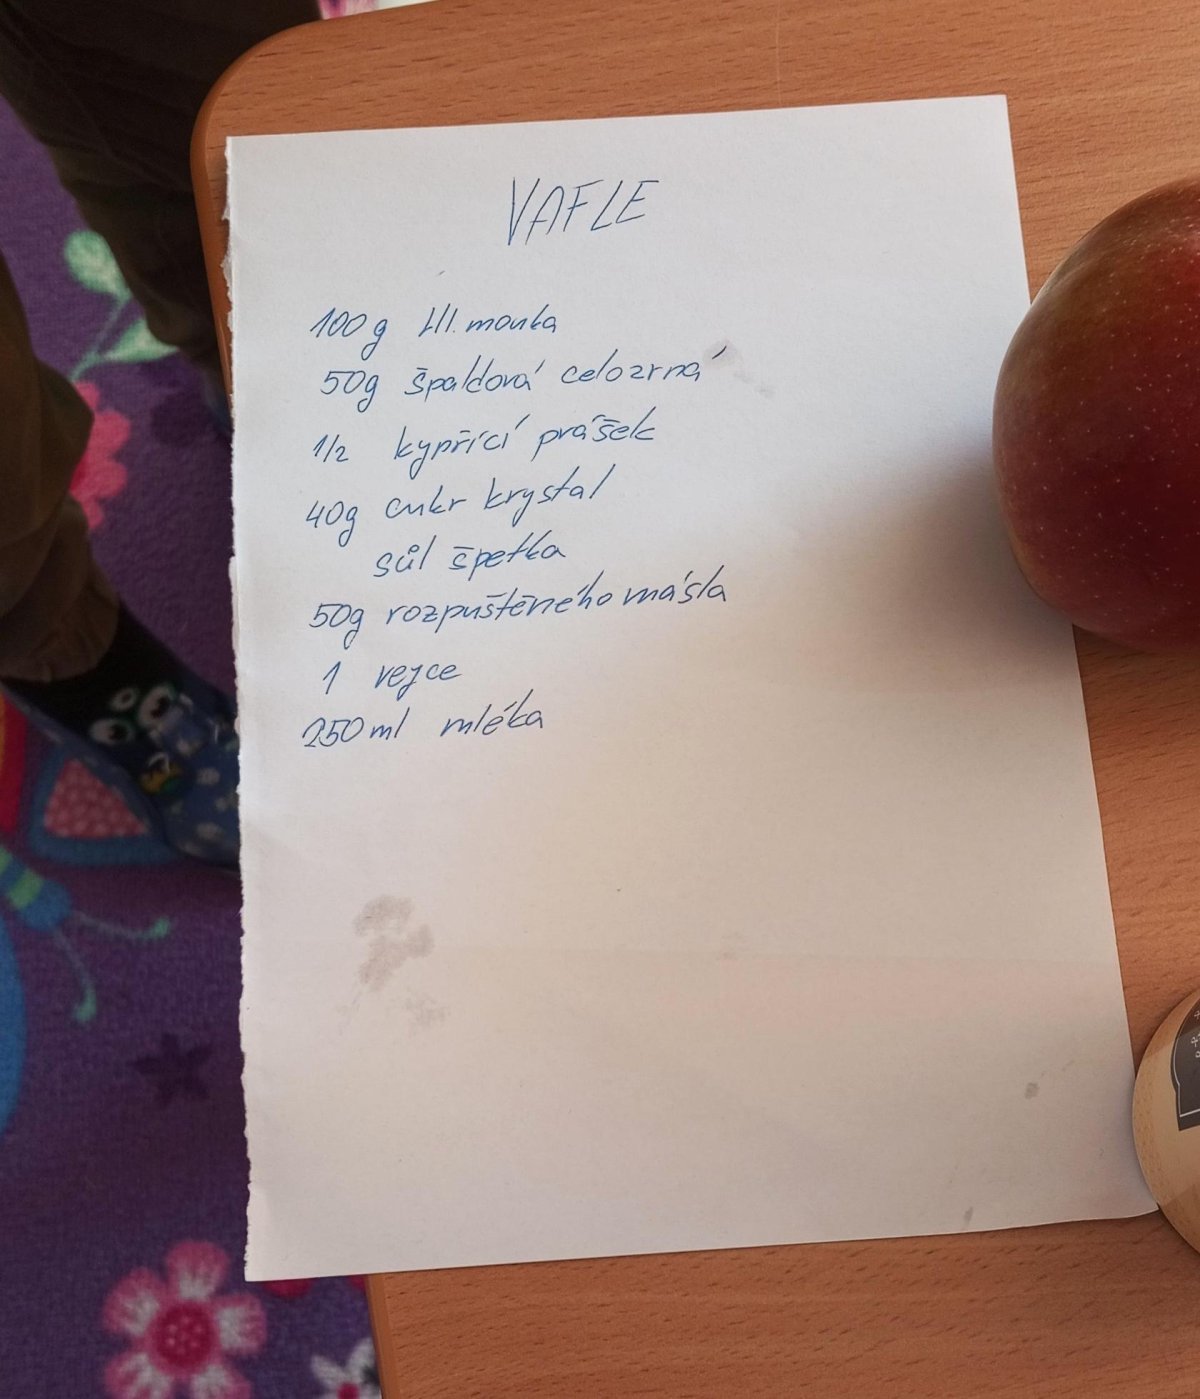 VAFLE
100g hl. mouka
50g špaldová celozrná
1/2 kypřící prášek
40g cukr krystal
sůl špetka
50g rozpuštěného másla
1 vejce
250ml mléka